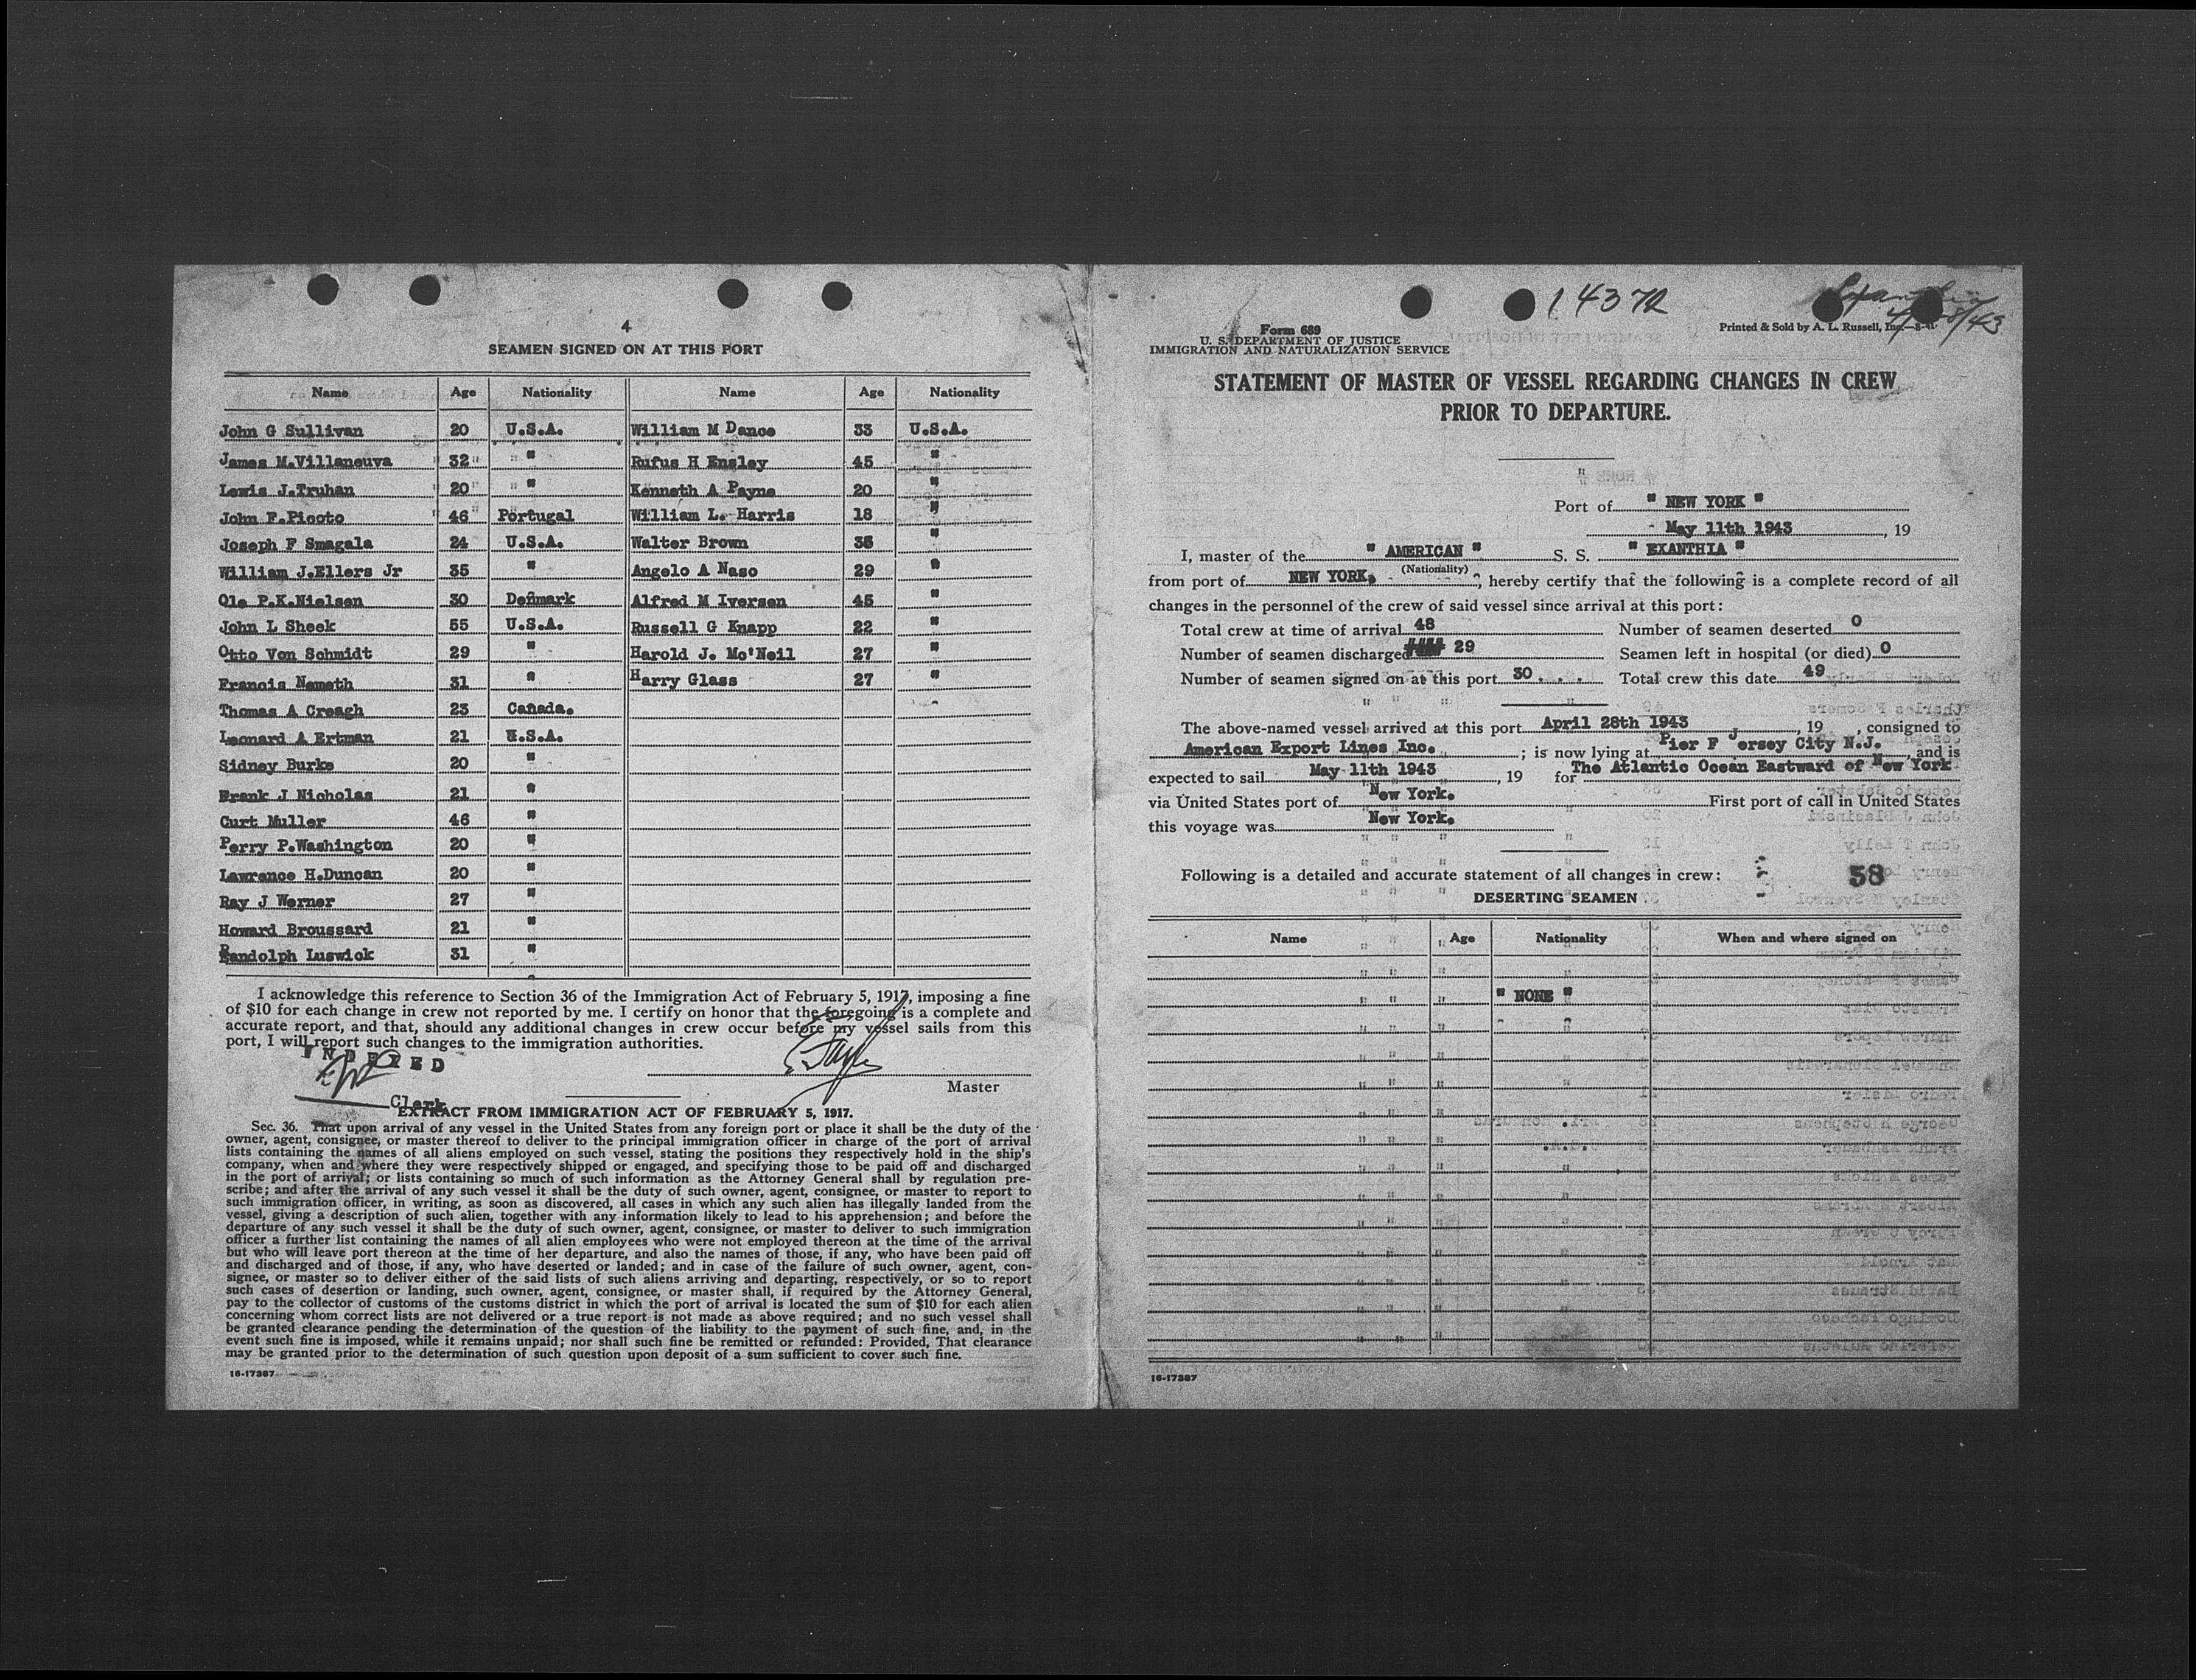 4
SEAMEN SIGNED ON AT THIS PORT
Name Age Nationality Name Age Nationality
John G Sullivan 20 U.S.A. William M Dance 33 U.S.A.
James M.Villaneuva 32 " Rufus H Ensley 45 "
Lewis J.Truhan 20 " Kenneth A Payne 20 "
John F.Picoto 46 Portugal William L. Harris 18 "
Joseph F Smagala 24 U.S.A. Walter Brown 36 "
William J.Ellers Jr 35 " Angelo A Naso 29 "
Ole P.K.Nielsen 30 Denmark Alfred M Iversen 45 "
John L Sheek 55 U.S.A. Russell G Knapp 22 "
Otto Von Schmidt 29 " Harold J. Mc'Neil 27 "
Francis Nemeth 31 " Harry Glass 27 "
Thomas A Creagh 23 Canada.
Leonard A Ertman 21 U.S.A.
Sidney Burke 20 "
Frank J Nicholas 21 "
Curt Muller 46 "
Perry P.Washington 20 "
Lawrence H.Duncan 20 "
Ray J Werner 27 "
Howard Broussard 21 "
Randolph Luswick 31 "
I acknowledge this reference to Section 36 of the Immigration Act of February 5, 1917, imposing a fine
of $10 for each change in crew not reported by me. I certify on honor that the foregoing is a complete and
accurate report, and that, should any additional changes in crew occur before my vessel sails from this
port, I will report such changes to the immigration authorities.
INDEXED
Master
Clerk
EXTRACT FROM IMMIGRATION ACT OF FEBRUARY 5, 1917.
Sec. 36. That upon arrival of any vessel in the United States from any foreign port or place it shall be the duty of the
owner, agent, consignee, or master thereof to deliver to the principal immigration officer in charge of the port of arrival
lists containing the names of all aliens employed on such vessel, stating the positions they respectively hold in the ship's
company, when and where they were respectively shipped or engaged, and specifying those to be paid off and discharged
in the port of arrival; or lists containing so much of such information as the Attorney General shall by regulation pre-
scribe; and after the arrival of any such vessel it shall be the duty of such owner, agent, consignee, or master to report to
such immigration officer, in writing, as soon as discovered, all cases in which any such alien has illegally landed from the
vessel, giving a description of such alien, together with any information likely to lead to his apprehension; and before the
departure of any such vessel it shall be the duty of such owner, agent, consignee, or master to deliver to such immigration
officer a further list containing the names of all alien employees who were not employed thereon at the time of the arrival
but who will leave port thereon at the time of her departure, and also the names of those, if any, who have been paid off
and discharged and of those, if any, who have deserted or landed; and in case of the failure of such owner, agent, con-
signee, or master so to deliver either of the said lists of such aliens arriving and departing, respectively, or so to report
such cases of desertion or landing, such owner, agent, consignee, or master shall, if required by the Attorney General,
pay to the collector of customs of the customs district in which the port of arrival is located the sum of $10 for each alien
concerning whom correct lists are not delivered or a true report is not made as above required; and no such vessel shall
be granted clearance pending the determination of the question of the liability to the payment of such fine, and, in the
event such fine is imposed, while it remains unpaid; nor shall such fine be remitted or refunded: Provided, That clearance
may be granted prior to the determination of such question upon deposit of a sum sufficient to cover such fine.
16-17387
14372
Exanthia
4/28/43
Form 689
U. S. DEPARTMENT OF JUSTICE
IMMIGRATION AND NATURALIZATION SERVICE
Printed & Sold by A. L. Russell, Inc.—8-41
STATEMENT OF MASTER OF VESSEL REGARDING CHANGES IN CREW
PRIOR TO DEPARTURE.
Port of " NEW YORK "
May 11th 1943, 19
I, master of the " AMERICAN " S. S. " EXANTHIA "
(Nationality)
from port of NEW YORK. , hereby certify that the following is a complete record of all
changes in the personnel of the crew of said vessel since arrival at this port:
Total crew at time of arrival 48 Number of seamen deserted 0
Number of seamen discharged #### 29 Seamen left in hospital (or died) 0
Number of seamen signed on at this port 30. . . Total crew this date 49
The above-named vessel arrived at this port April 28th 1943, 19 , consigned to
American Export Lines Inc. ; is now lying at Pier F Jersey City N.J. , and is
expected to sail May 11th 1943, 19 for The Atlantic Ocean Eastward of New York
via United States port of New York. First port of call in United States
this voyage was New York.
Following is a detailed and accurate statement of all changes in crew: 58
DESERTING SEAMEN
Name Age Nationality When and where signed on
" NONE "
16-17387